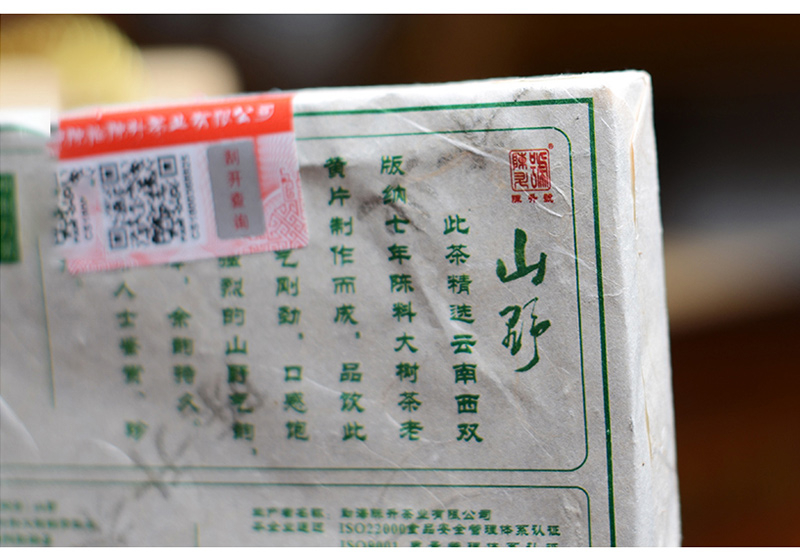 陈升号
陳升號
山野
此茶精选云南西双
版纳七年陈料大树茶老
黄片制作而成，品饮此
气刚劲，口感饱
强烈的山野气韵，
余韵持久，
人士鉴赏、珍
刮开查询
茶业有限公司
生产者名称：勐海陈升茶业有限公司
本企业通过 ISO22000食品安全管理体系认证